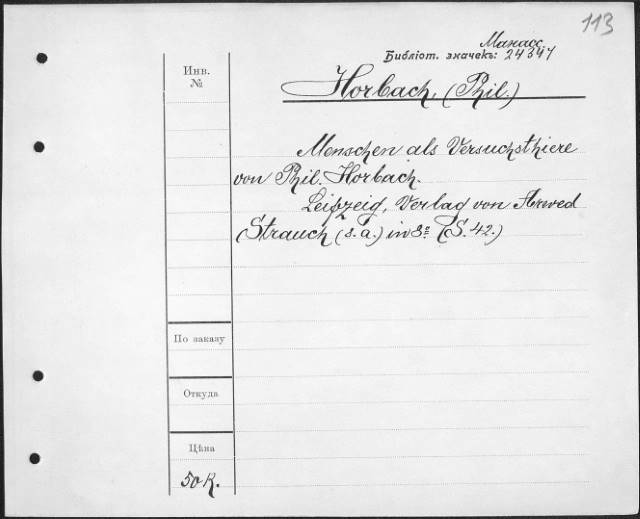 113
Манасс.
Библіот. значекъ: 24347
Инв.
№
Horbach, (Phil.)
Menschen als Versuchsthiere
von Phil. Horbach.
Leipzig, Verlag von Arwed
Strauch (s. a.) in 8º (S. 42.)
По заказу
Откуда
Цѣна
50 К.